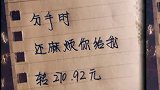 分手时
还麻烦你给我
转210.92元